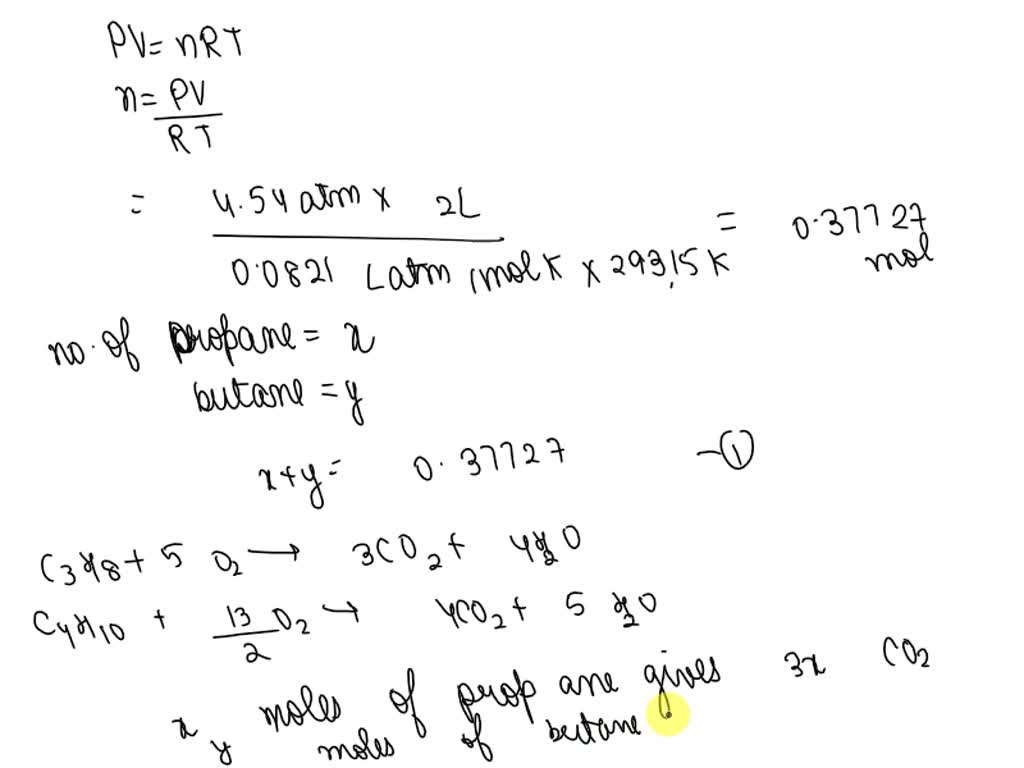 PV = nRT
n = PV
RT
= 4.54 atm x 2L
0.0821 Latm /molK x 293.15 K
= 0.37727 mol
no. of propane = x
butane = y
x+y = 0.37727 -①
C3H8 + 5 O2 → 3CO2 + 4H2O
C4H10 + 13/2 O2 → 4CO2 + 5 H2O
x moles of propane gives 3x CO2
y moles of butane